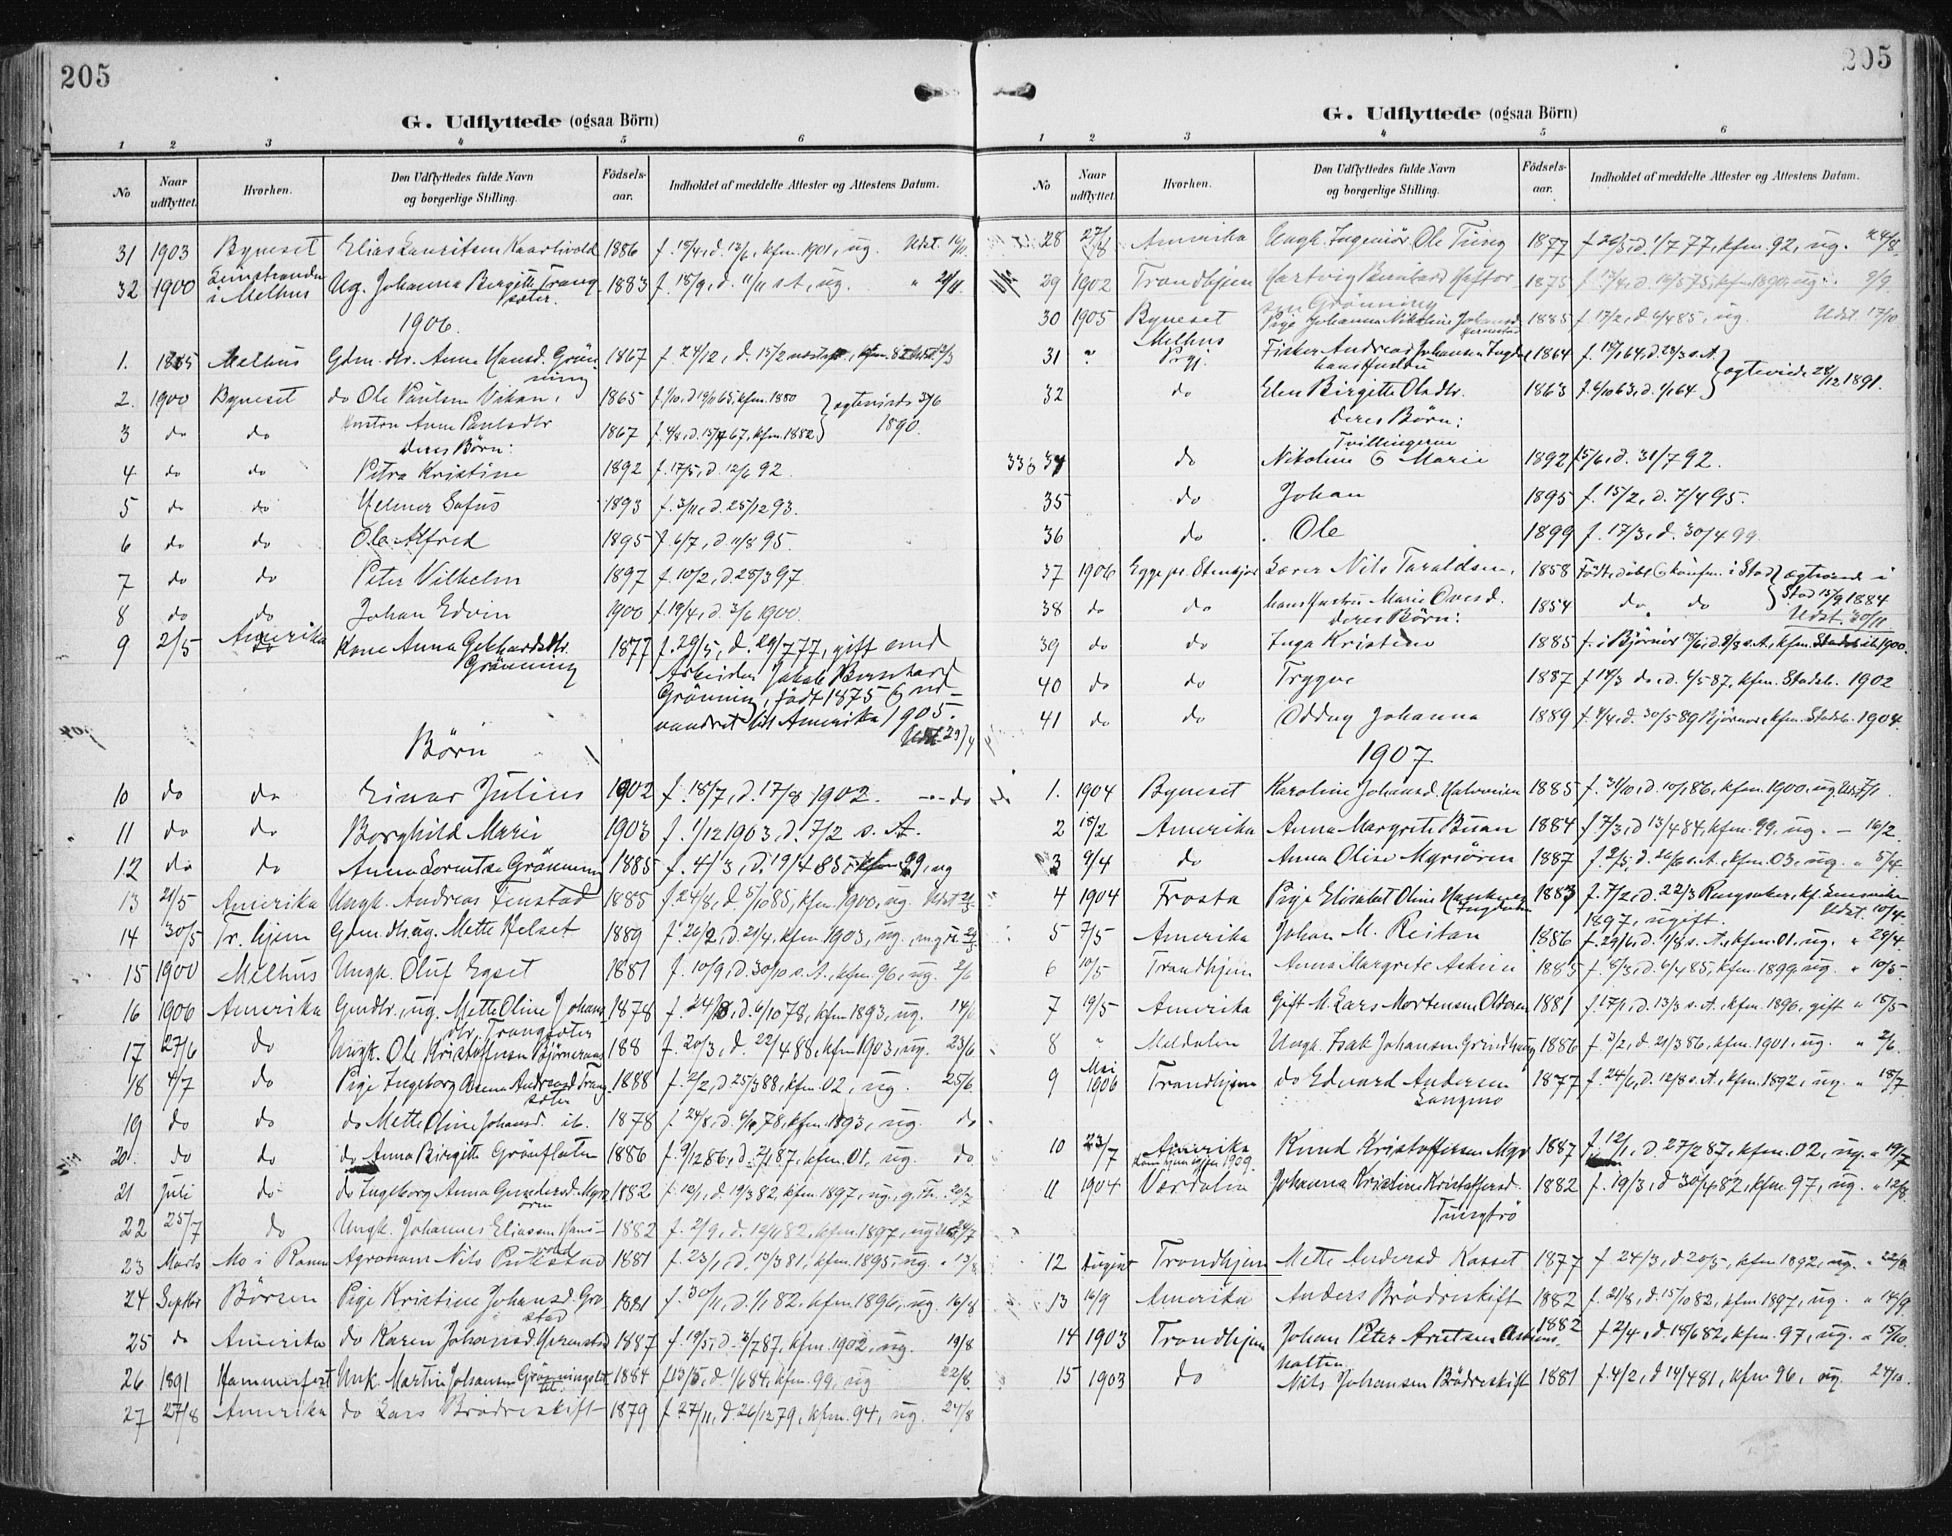 205
G. Udflyttede (ogsaa Börn)
1 2 3 4 5 6
No Naar udflyttet. Hvorhen. Den Udflyttedes fulde Navn og borgerlige Stilling. Fødselsaar. Indholdet af meddelte Attester og Attestens Datum.
31 1903 Byneset Elias Lauritsen 1886 f. 18/4, d. 13/6, kfm. 1901, ug. Udst.
32 1900 i Melhus Ug. Johanna Birgitte Trang- 1883 f. 18/9, d. 11/11 s.A, ug. " 21/11.
sæter
1906.
1. Melhus Gdm. dtr. Anne Hansd. Grön- 1867 f. 24/12, d. 15/2
ning
2. 1900 Byneset do Ole Paulsen Vikan, 1865 kfm. 1880 ægteviede
3 do do Hustru Anne Paulsdtr 1867 f. 4/8, kfm. 1882 1890.
deres Börn:
4 do do Petra Kristine 1892 f. 17/5, d. 12/6 92.
5 do do Helmer Sofus 1893 f. 3/11, d. 25/12 93.
6 do do Ole Alfred 1895 f. 6/7, d. 11/8 95.
7 do do Peter Vilhelm 1897 f. 10/2, d. 28/3 97.
8 do do Johan Edvin 1900 f. 19/4, d. 3/6 1900.
9 2/5 Amerika Kone Anna Gebhardsdtr. 1877 f. 29/5, d. 29/7 77, gift med
Grönning Arbeider Jakob Bernhard
Grönning, födt 1875 & ud-
vandret til Amerika 1905.
Börn Udst. 23/4
10 do do Einar Julius 1902 f. 18/7, d. 17/8 1902. do
11 do do Borghild Marie 1903 f. 1/12 1903, d. 7/2 s.A.
12 do do Anna Lorentse Grönning 1885 f. 4/3, d. 19/4 85, kfm 99, ug
13 21/5 Amerika Ungk. Andreas Finstad 1885 f. 24/8, d. 5/10 85, kfm. 1900, ug. Udst.
14 30/5 Tr.hjem Gdm. dt. ug. Mette Kelset 1889 f. 26/2, d. 21/4, kfm. 1903, ug.
15 1900 Melhus Ungk. Oluf Egset 1881 f. 10/9, d. 30/10 s.A., kfm. 96, ug. 2/6
16 1906 Amerika Gmdtr., ug. Mette Oline Johans- 1878 f. 24/8, d. 6/10 78, kfm 1893, ug. 14/6
dtr. Trangsæter
17 27/6 do Ungk. Ole Kristoffersen 188 f. 20/3, d. 22/4 88, kfm 1903, ug. 23/6
18 4/7 do Pige Ingeborg Anna Andersd Trang- 1888 f. 2/2, d. 25/3 88, kfm. 02, ug. 25/6.
sæter
19 do do do Mette Oline Johansd. ib. 1878 f. 24/8, d. 6/10 78, kfm. 1893, ug. do
20. do do do Anna Birgitte Grönflaten 1886 f. 9/12 86, d. 2/1 87, kfm. 01, ug. do
21 Juli do do Ingeborg Anna Gundersd. Myr- 1882 f. 13/1, d. 19/3 82, kfm. 1897, ug.
ören
22 25/7 do Ungk. Johannes Eliassen 1882 f. 2/9, d. kfm. 1897, ug 24/7
23 Marts Mo i Ranen Agronom Nils 1881 f. 23/1, d. 13/3 81, kfm. 1895, ug. " 13/8
24 Septbr Börsen Pige Kristine Johansd. Gro- 1881 f. 30/11, d. 1/1 82, kfm. 1896, ug. 16/8
stad
25 do Amerika do Karen Johansd 1887 f. 19/5, kfm. 1902, ug. 19/8
26 1891 Hammerfest Unk. Martin Johansen 1884 f. 13/5, d. 1/6 84, kfm. 99, ug 22/8.
27 27/8 Amerika do Lars Brödreskift 1879 f. 27/11, d. 26/12 79, kfm. 94, ug. 24/8
205
G. Udflyttede (ogsaa Börn)
1 2 3 4 5 6
No Naar udflyttet. Hvorhen. Den Udflyttedes fulde Navn og borgerlige Stilling. Fødselsaar. Indholdet af meddelte Attester og Attestens Datum.
28 27/8 Amerika Ungk. Ingeniör Ole Tung 1877 f. 26/5, d. 1/7 77, kfm. 92, ug. 24/8.
29 1902 Trondhjem Hartvig Bernhard 1875 f. 13/4, d. 16/5 75, kfm 1890, ug. 9/9
Grönning
30 1905 Byneset Pige Johanna Nikoline Johansd. 1885 f. 17/2, d. 6/4 85, ug. Udst 17/10
Melhus
31 " Fisker Andreas Johansen 1864 ægteviede 28/12 1891.
hans Hustru
32 do Elen Birgitte Olsdtr. 1863 f. 6/10 63, d. 1/1 64.
deres Börn:
Tvillingerne
33 & 34 do Nikoline & Marie 1892 f. 5/6, d. 31/7 92.
35 do Johan 1895 f. 15/2, d. 7/4 95.
36 do Ole 1899 f. 17/3, d. 30/4 99
37 1906 Egge pr. Stenkjær Lærer Nils Taraldsen, 1858 Födt, döbt & konfm. i Stod ægteviede i
38 do do hans Hustru Marie 1854 do do Stod 15/9 1884
deres Börn: Udst. 30/11
39 do do Inga Kristine 1885 f. i Björnör 18/6, kfm. 1900.
40 do do Trygve 1887 f. do, d. kfm. Stodsb. 1902
41 do do Oddny Johanna 1889 f. d. 30/5 89 Björnör, kfm. Stodsb. 1904.
1907
1. 1904 Byneset Karoline Johansd. Halvorsen 1885 f. 31/10, kfm. 1900, ug. Udst.
2 18/2 Amerika Anna Margrete Buan 1884 f. 7/3, d 13/4 84, kfm. 99, ug. - 16/2
3 9/4 do Anna Olise Myrsören 1887 f. 2/5, d. 26/6 s.A., kfm. 03, ug. " 5/4
4 1904 Frosta Pige Elisabet Oline 1883 f. 7/2, d. 22/3 Ringsaker, kf.
Udst. 10/4
1897, ugift.
5 7/5 Amerika Johan M. Reitan 1886 f. 29/6, d. 1/8 s.A., kfm. 01, ug. " 29/4.
6 10/5 Trondhjem Anna Margrete 1885 f. 8/3, d. 6/4 85, kfm. 1899, ug. " 10/5.
7 19/5 Amerika Gift M. Lars Mortensen Olderen 1881 f. 17/1, d. 13/3 s.A., kfm. 1896, gift " 15/5
8 " Meldalen Ungk. Isak Johansen Grindhaug 1886 f. 3/2, d. 21/3 86, kfm. 1901, ug. " 2/6.
9 Mai 1906 Trondhjem do Edvard Andersen 1877 f. 24/6, d. 12/8 s.A., kfm. 1892, ug. " 18/7
Langmo
10 23/7 Amerika Knud Kristoffersen Myr 1887 f. 12/1, d. 27/2 87, kfm. 02, ug. " 19/7
11 1904 Værdalen Johanna Kristine Kristoffersd. 1882 f. 19/3, d 30/4 82, kfm. 97, ug. " 12/8
12 August Trondhjem Mette Andersd Kosset 1877 f. 24/3, d 20/5, kfm. 1892, ug. " 22/8
13 16/9 Amerika Anders Brödreskift 1882 f. 21/8, d. 15/10 82, kfm. 1897, ug. " 14/9
14 1903 Trondhjem Johan Peter Arntsen 1882 f. 2/4, d 18/6 82, kfm. 97, ug. " 15/10.
15 1903 do Nils Johansen Brödreskift 1881 f. 4/2, d 14/4 81, kfm 96, ug. 24/10.